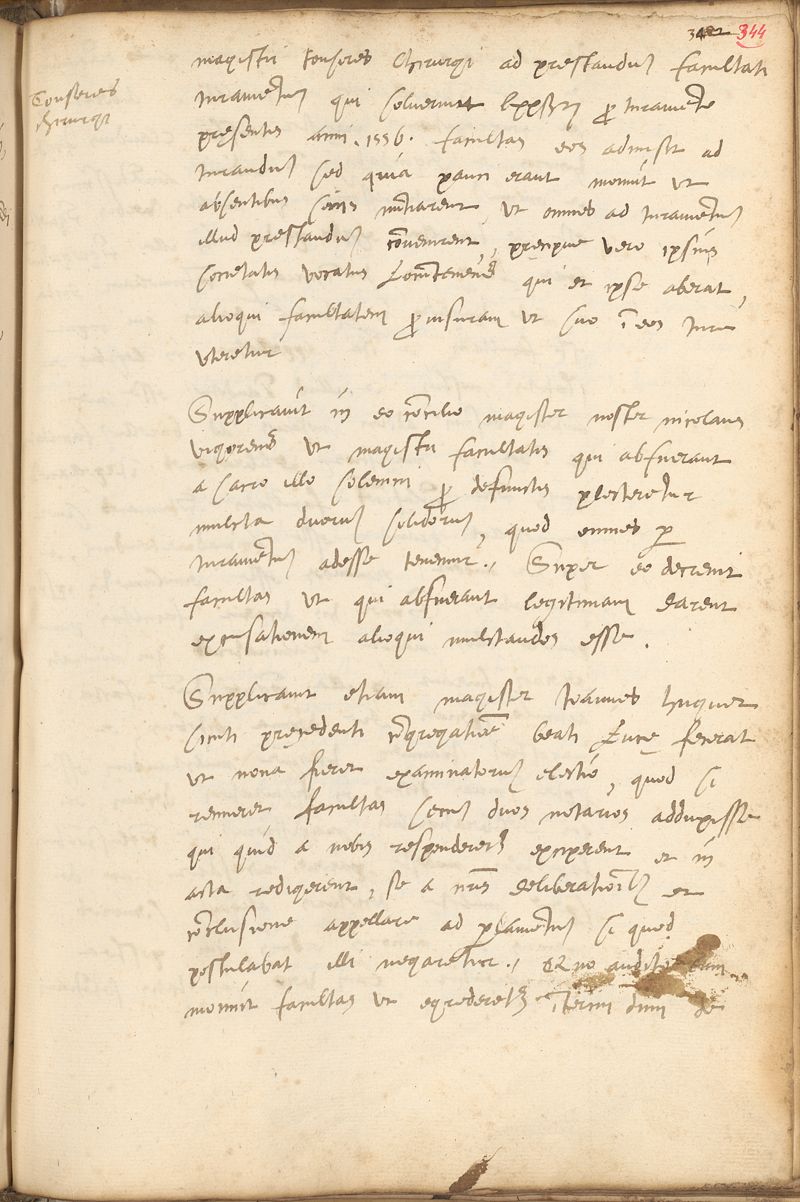 342 344
Tonsores
chirurgi
magistri tonsores chirurgi ad prestandũ facultati
iuramentũ qui solverunt pro iuramento
presentis anni .1556. facultas eos admisit ad
iurandũ sed quia pauci erant monuit ut
absentibus sociis nuntiarent, ut omnes ad iuramentũ
illud prestandũ cõvenirent, precipue vero ipsius
societatis vocatus Locũtenens qui et ipse aberat,
alioqui facultatem provisuram ut suo ĩ eos iure
uteretur
Supplicavit in eo cõcilio magister noster nicolaus
vigorens ut magistri facultatis qui abfuerant
a sacro illo solemni pro defunctis plecteretur
mulcta duorũ solidorũ, quod omnes per
iuramentũ adesse tenemur. Super eo decrevit
facultas ut qui abfuerant legitimam darent
excusationem alioqui mulctandos esse.
Supplicavit etiam magister Ioannes huguet
sicuti precedenti cõgregatiõe beati Lucę fecerat
ut nova fieret examinatorũ electio, quod si
renueret facultas secũ duos notarios adduxisse
qui quid a nobis responderetur exciperent et in
acta redigerent, se a nris deliberationibus et
cõclusione appellare ad parlamentũ si quod
postulabat illi negaretur. Quo audito eum
monuit facultas ut egrederetur Iterim dum de